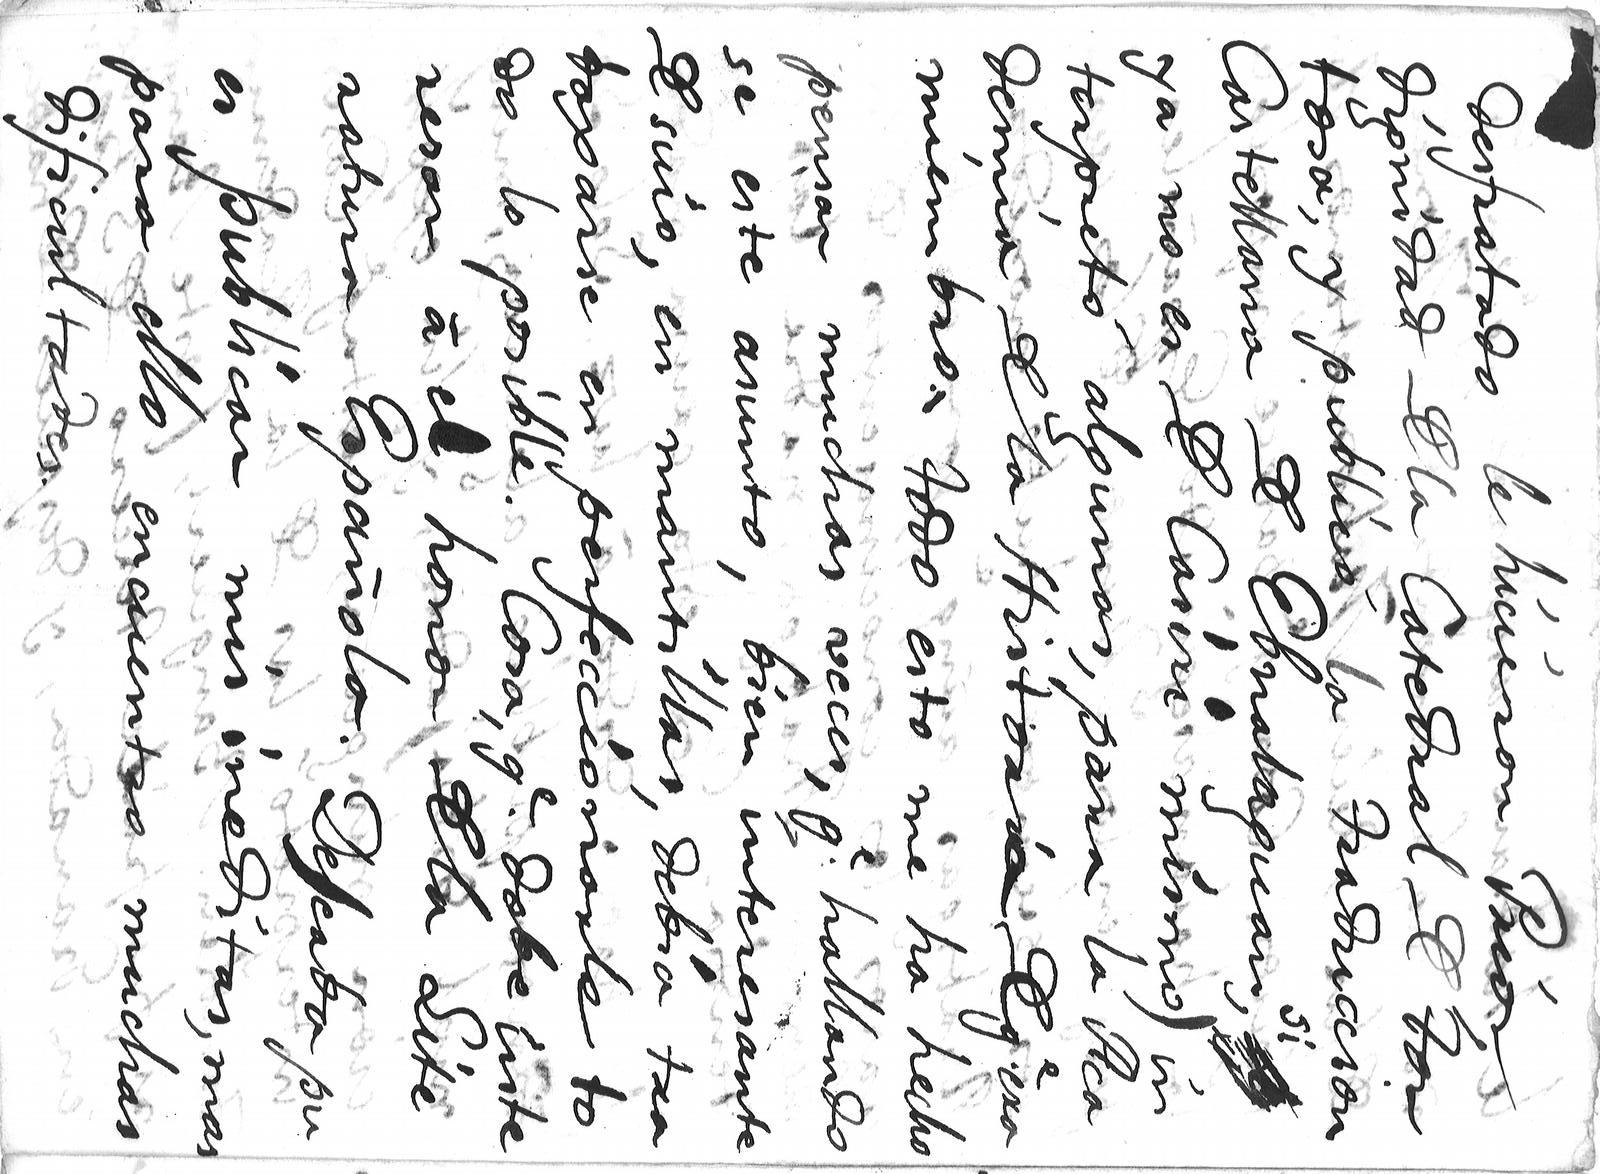 desfrutado le hicieron Prior
dignidad de la Catedral de Tor
tosa, y publicó la traduccion
Castellana de Ebnabaguar, si
ya no es de Casiri mismo) in
terpretó algunas, para la Aca
demia de la Historia de q.e era
miembro. todo esto me ha hecho
pensar muchas veces, q.e hallando
se este asunto, bien interesante
de suio, en mantillas, debia tra
bajarse en perfeccionarle to
do lo posible. Cosa, q.e debe inte
resar ā el honor de la Lite
ratura Española. Deseaba pu
es publicar mis ineditas, mas
para ello encuentro muchas
dificultades.